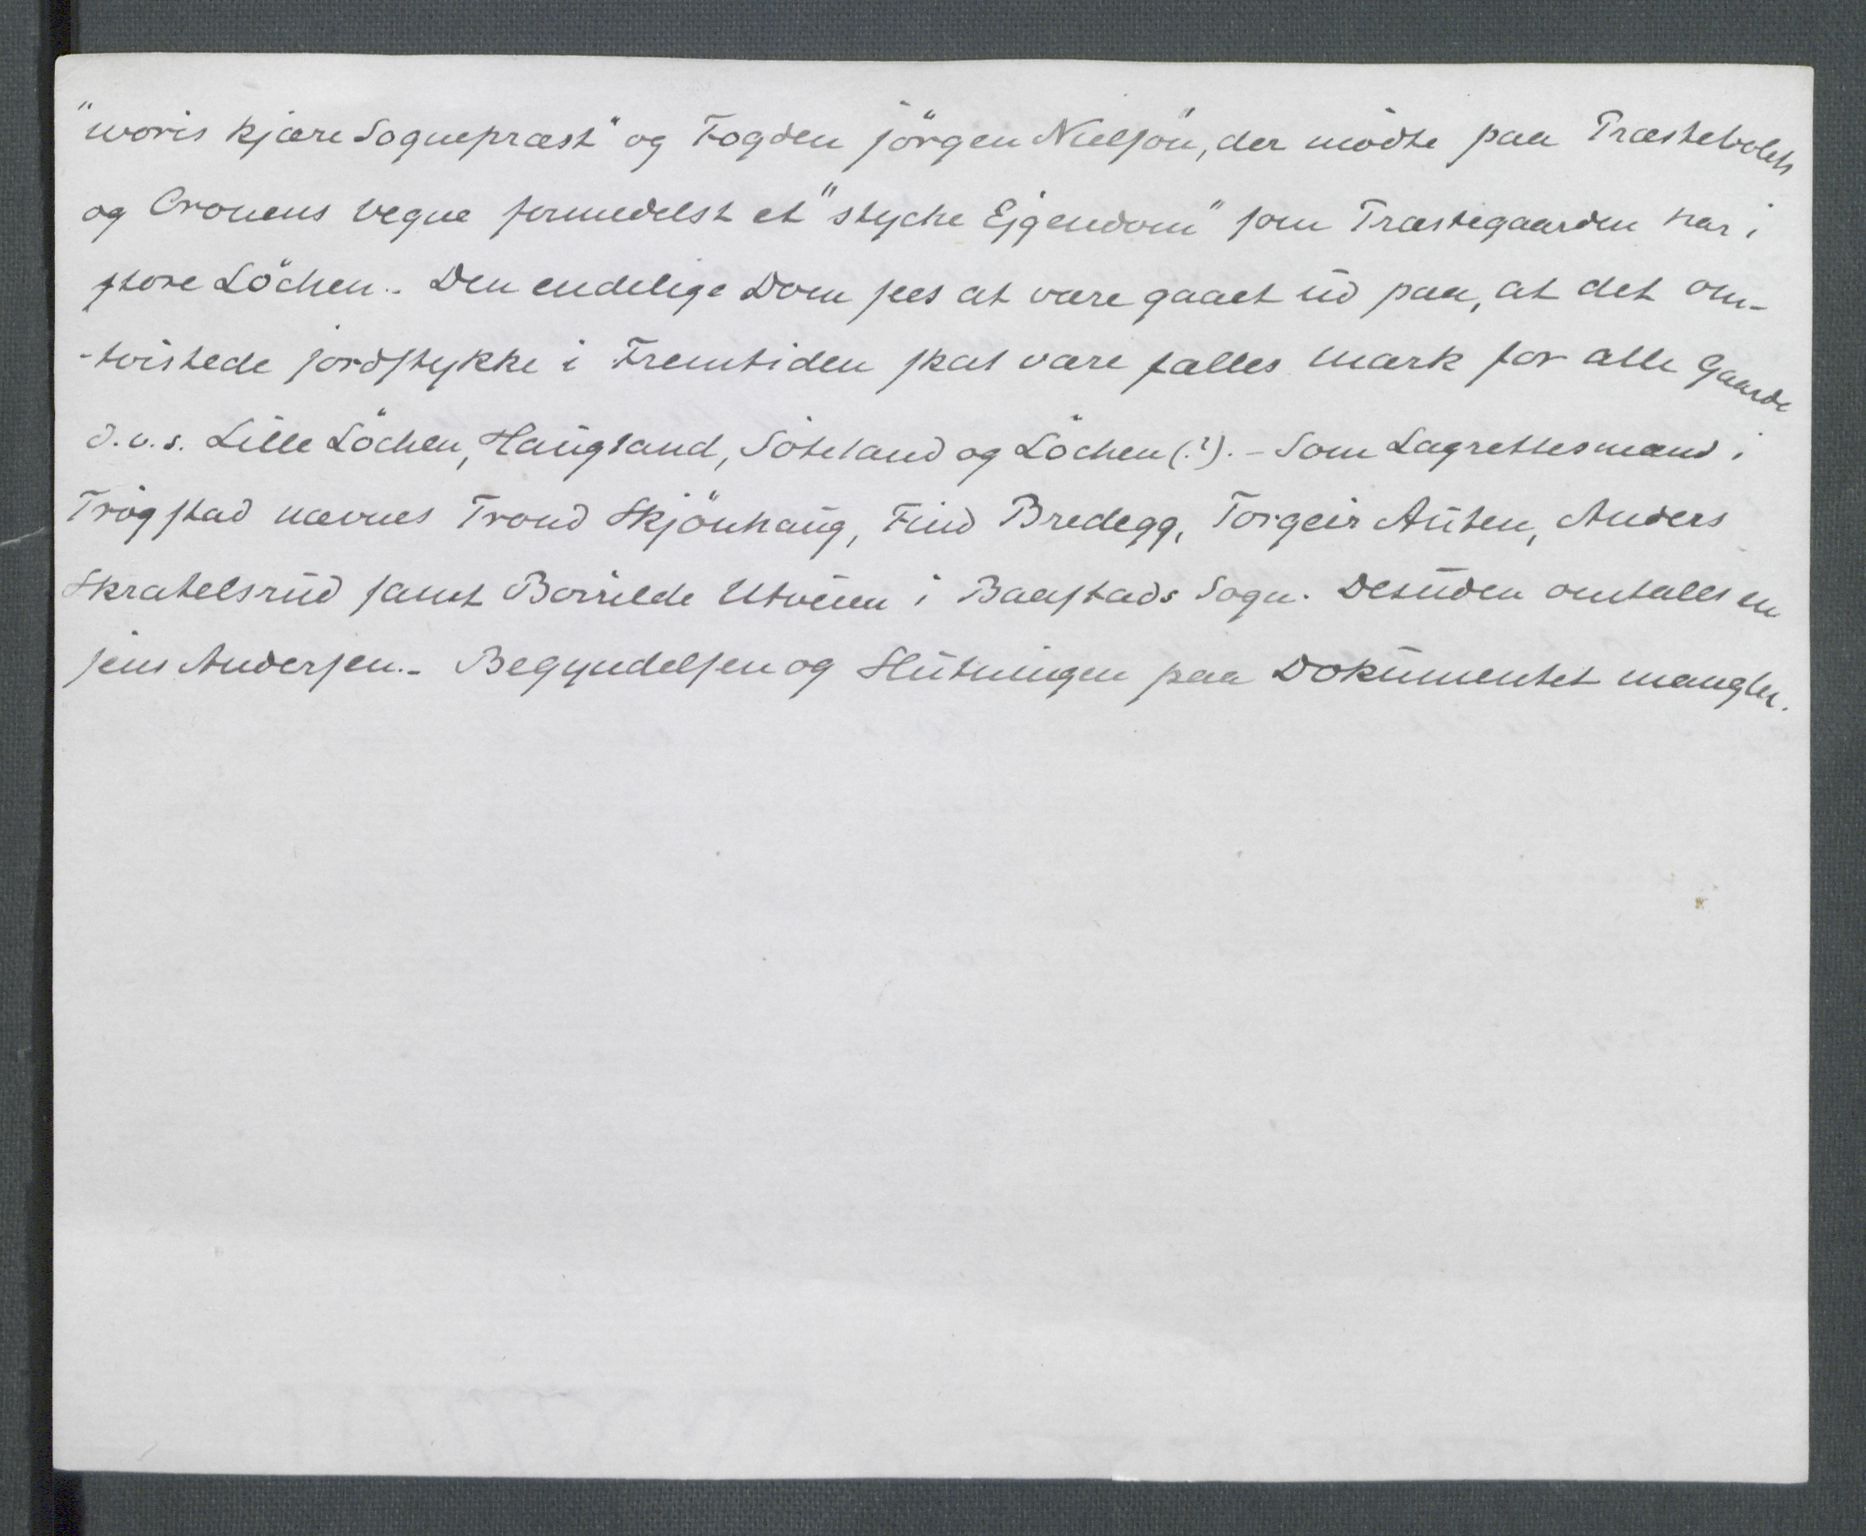 "woris kjære Sognepræst" og Fogden Jörgen Nielsön, der mödte paa Præstebolets
og Cronens vegne formedelst et "stycke Ejgendom" som Præstegaarden har i
store Löchen.- Den endelige Dom sees at være gaaet ud paa, at det om-
-tvistede Jordstykke i Fremtiden skal være fælles mark for alle Gaarde
d.v.s. Lille Löchen, Haugland, Söteland og Löchen (?). - Som Lagrettesmænd i
Trögstad nævnes Trond Skjönhaug, Find Bredegg, Torgeir Auten, Anders
Skratelsrud samt Borrilde Utveien i Baastads Sogn. Desuden omtales en
Jens Andersen.- Begyndelsen og Slutningen paa Dokumentet mangler.